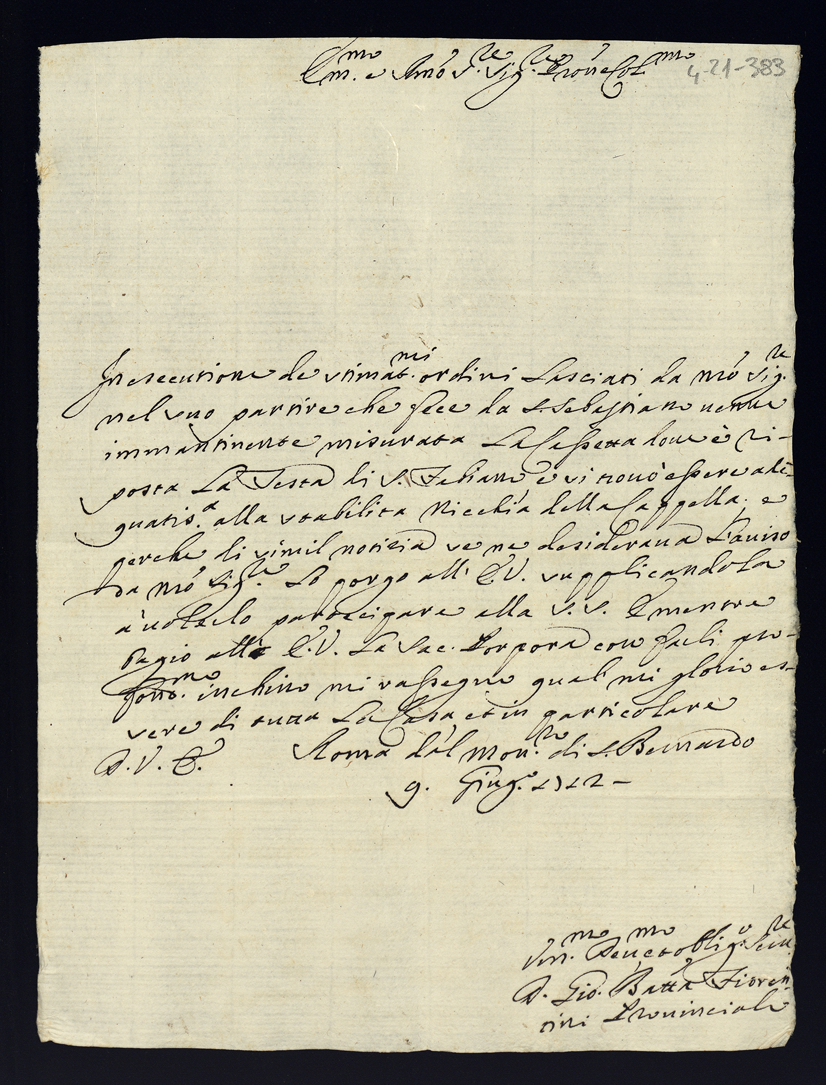 Em.mo e Rmo S.re Sig.re Prone Col.mo
4-21-383
In esecutione de stimat.mi ordini Lasciati da Mo Sig.re
nel suo partire che fece da S. Sebastiano venne
immantinente misurata La Cassetta dove è ri-
posta La Testa di S. Fabiano e si trovò essere ade-
guatis.a alla stabilita Nicchia della Cappella; e
perche di simil notizia se ne desiderava L'aviso
da Mo Sig.re Lo porgo all' E.V. supplicandola
à volerlo partecipare alla S.S. E mentre
bagio all E.V. La Sac. Porpora con farli pro-
fond.mo inchino mi rassegno qual mi glorio es-
sere di tutta La Casa et in particolare
D. V. E. Roma dal Mon.rio di S. Bernardo
9. Giug.o 1712 -
Um.mo Dev.mo oblig.o Ser.re
D. Gio. Batta Fioren-
tini Provinciale